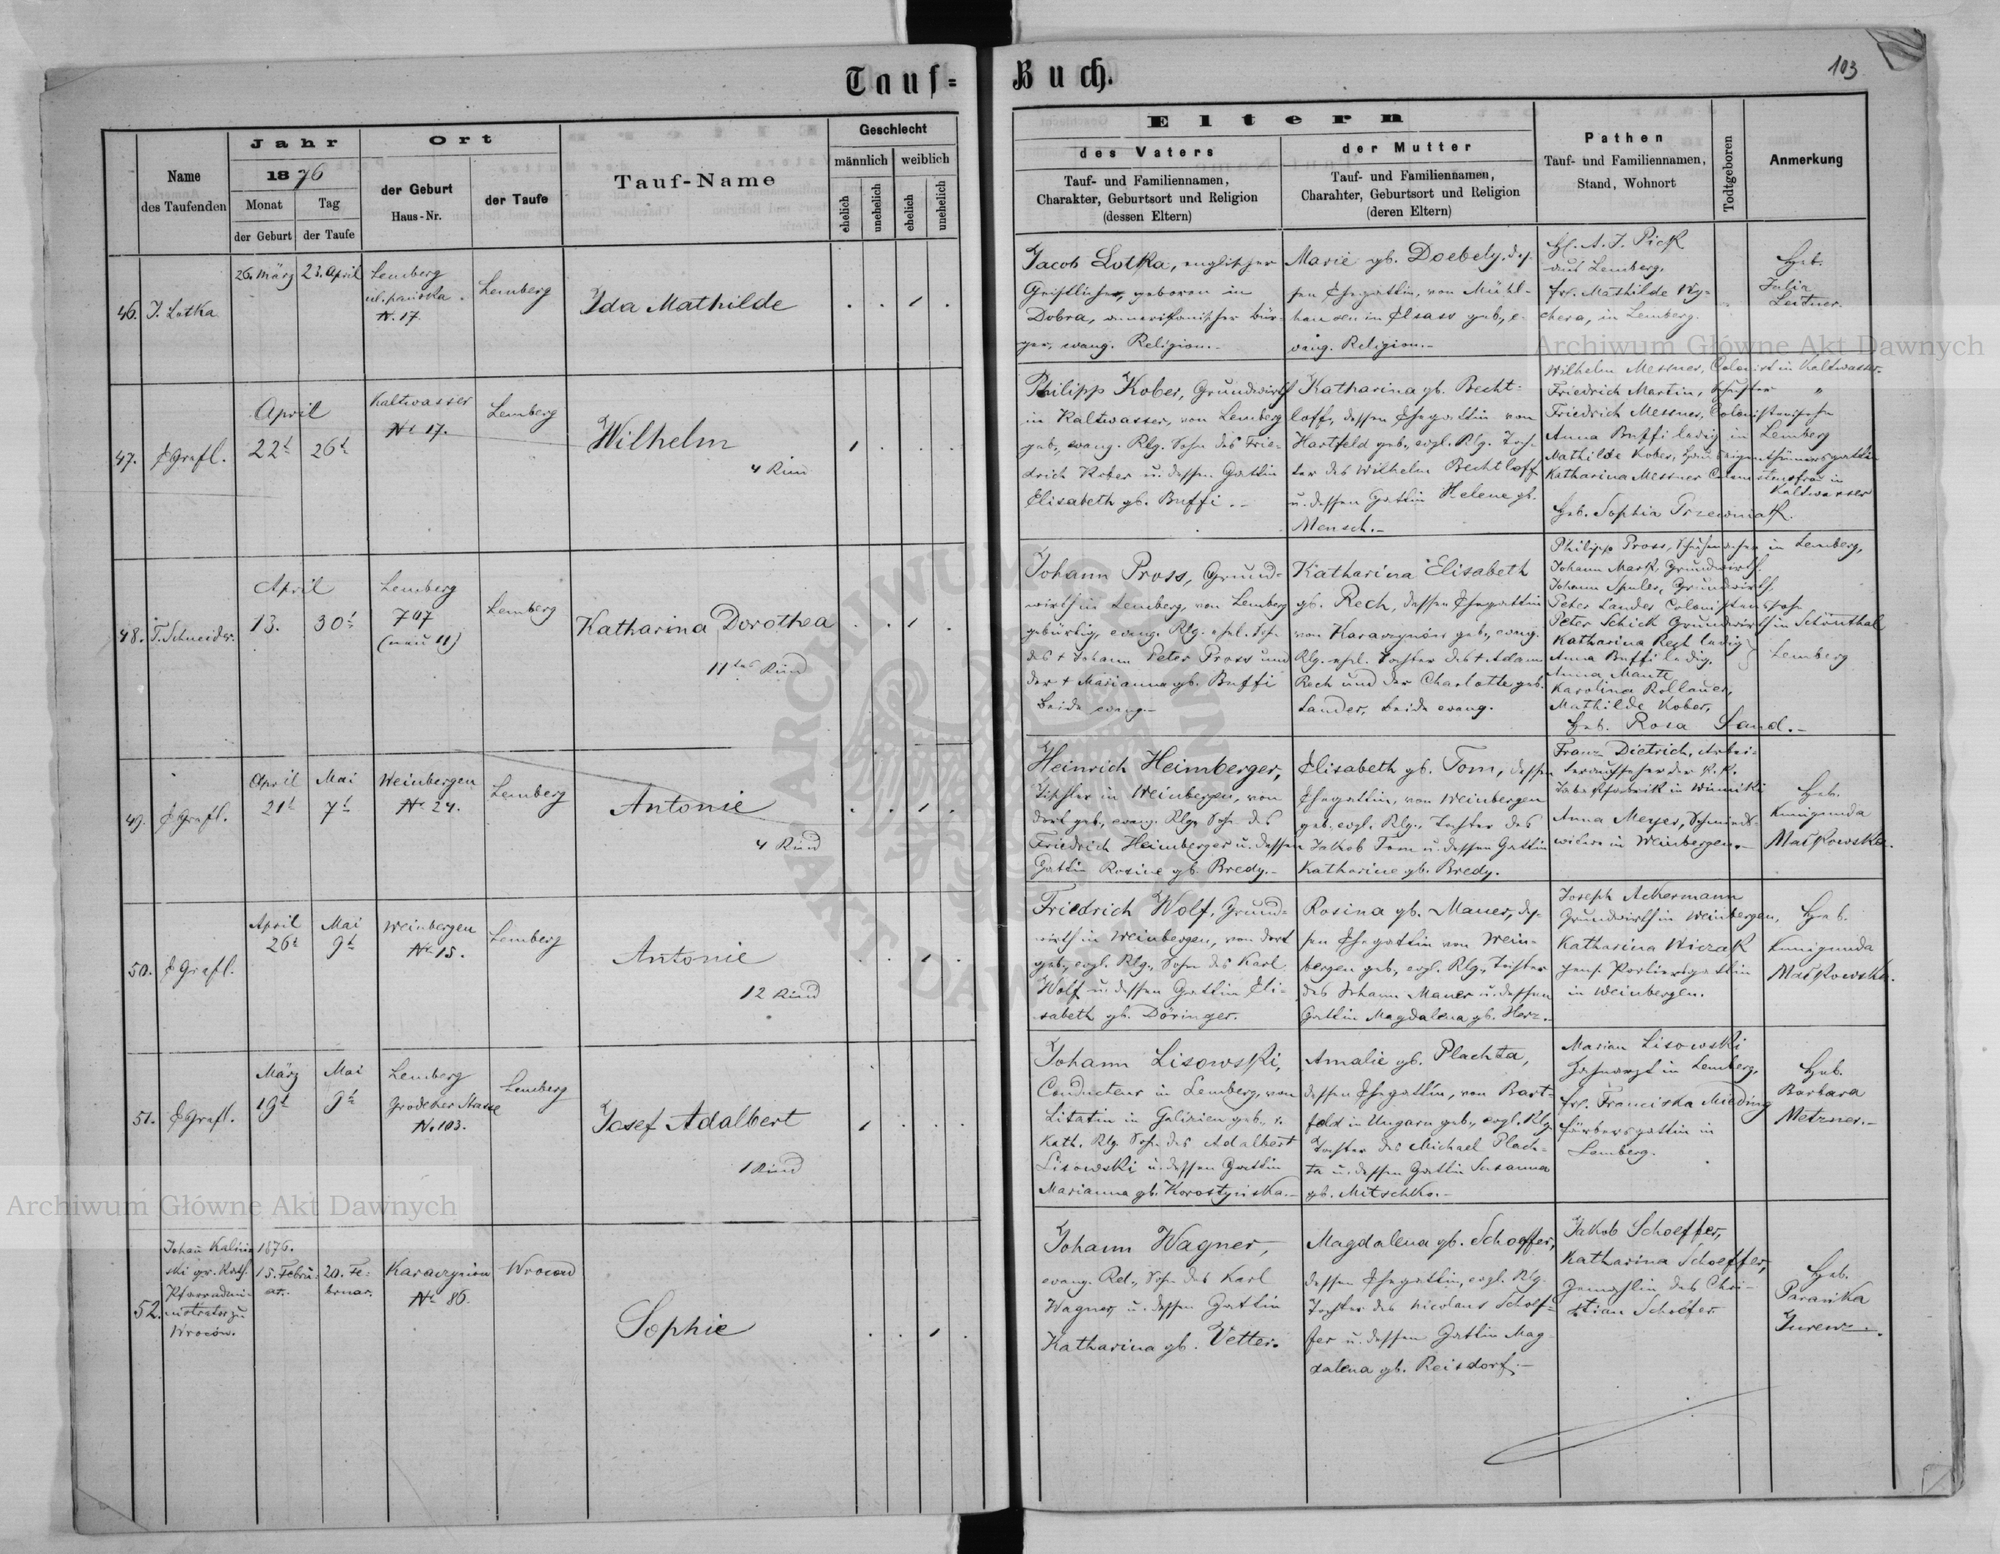 Tauf-Buch.
103
Name des Taufenden
Jahr
1876
Monat
Tag
der Geburt
der Taufe
Ort
der Geburt
Haus-Nr.
der Taufe
Tauf-Name
Geschlecht
männlich
weiblich
ehelich
unehelich
ehelich
unehelich
Eltern
des Vaters
Tauf- und Familiennamen,
Charakter, Geburtsort und Religion
(dessen Eltern)
der Mutter
Tauf- und Familiennamen,
Charahter, Geburtsort und Religion
(deren Eltern)
Pathen
Tauf- und Familiennamen,
Stand, Wohnort
Todtgeboren
Anmerkung
46.
J. Lotka
26. März
23. April
Lemberg
ul. pańska
N. 17
Lemberg
Ida Mathilde
Jacob Lotka, englischer
Geistlicher, geboren in
Dobra, amerikanischer Bür-
ger, evang. Religion.-
Marie gb. Doebely, des-
sen Ehegattin, von Mühl-
hausen in Elsass geb., e-
vang. Religion.-
H. A. J. Pick
aus Lemberg.
Fr. Mathilde
in Lemberg.
Heb.
Julia
Leitner.
47.
E Grafl.
April
22t
26t
Kaltwasser
Nr 17.
Lemberg
Wilhelm
4 Kind
Philipp Kober, Grundwirth
in Kaltwasser, von Lemberg
geb., evang. Rlg. Sohn des Frie-
drich Kober u. dessen Gattin
Elisabeth gb. Buffi.-
Katharina gb. Becht-
loff, dessen Ehegattin von
Hartfeld geb., evgl. Rlg. Toch-
ter des Wilhelm Bechtloff
u. dessen Gattin Helene gb.
Mensch.-
Wilhelm Messner, Colonist in Kaltwasser.
Friedrich Martin, Schuster "
Friedrich Messner, Colonistensohn
Anna Buffi ledig in Lemberg
Mathilde Kober, Hauseigenthümersgattin
Katharina Messner Colonistensfrau in
Kaltwasser
Heb. Sophia
48.
T. Schneider.
April
13.
30t
Lemberg
707
(neu 11)
Lemberg
Katharina Dorothea
11tes Kind
Johann Pross, Grund-
wirth in Lemberg, von Lemberg
gebürtig, evang. Rlg. ehel. Sohn
des + Johann Peter Pross und
der + Marianna gb. Buffi
Beide evang.-
Katharina Elisabeth
gb. Rech, dessen Ehegattin
von Karaczynów geb., evang.
Rlg. ehel. Tochter des + Adam
Rech und der Charlotte geb.
Lander, beide evang.
Philipp Pross, in Lemberg,
Johann Mark, Grundwirth.
Johann Spuler, Grundwirth
Peter Lander Colonistensohn
Peter Schick Grundwirth in Schönthal
Katharina Rech ledig
Anna Buffi ledig.
Lemberg
Anna Mantz
Karolina Rollauer,
Mathilde Kober,
Heb. Rosa Sand.-
49.
E Grafl.
April
21t
Mai
7t
Weinbergen
Nr 24.
Lemberg
Antonie
4 Kind
Heinrich Heimberger,
Tischler in Weinbergen, von
dort geb., evang. Rlg. Sohn des
Friedrich Heimberger u. dessen
Gattin Rosine gb. Bredy.-
Elisabeth gb. Tom, dessen
Ehegattin, von Weinbergen
geb. evgl. Rlg., Tochter des
Jakob Tom u. dessen Gattin
Katharine gb. Bredy.
Franz Dietrich, Arbei-
teraufseher der K. K.
Tabakfabrik in Winniki
Anna Meyer, Schmieds-
witwe in Weinbergen.-
Heb.
Kunigunda
Maćkowska.
50.
E Grafl.
April
26t
Mai
9t
Weinbergen
Nr 15.
Lemberg
Antonie
12 Kind
Friedrich Wolf, Grund-
wirth in Weinbergen, von dort
geb., evgl. Rlg., Sohn des Karl
Wolf u. dessen Gattin Eli-
sabeth gb. Döringer.
Rosina gb. Mauer, des-
sen Ehegattin von Wein-
bergen geb., evgl. Rlg., Tochter
des Johann Mauer u. dessen
Gattin Magdalena gb. Herz.-
Joseph Ackermann
Grundwirth in Weinbergen,
Katharina Wiczak
Portiersgattin
in Weinbergen.
Heb.
Kunigunda
Maćkowska.
51.
E Grafl.
März
19t
Mai
9t
Lemberg
Grodeker Strasse
N. 103.
Lemberg
Josef Adalbert
1 Kind
Johann Lisowski,
Conducteur in Lemberg, von
Litatin in Galizien geb., r.
kath. Rlg. Sohn des Adalbert
Lisowski u. dessen Gattin
Marianna gb. Korostyńska.-
Amalie gb. Plachta,
dessen Ehegattin, von Bart-
feld in Ungarn geb., evgl. Rlg.
Tochter des Michael Plach-
ta u. dessen Gattin Susanna
gb. Mitschko.-
Marian Lisowski
Zahnarzt in Lemberg,
Fr. Franciska Mieding
Färbersgattin in
Lemberg.
Heb.
Barbara
Metzner.-
52.
Johañ Kalini-
ski gr. Kath.
Pfarradmi-
nistrator zu
Wrocow.
1876.
15. Febru-
ar.
20. Fe-
bruar.
Karaczynów
Nr 86.
Wrocow
Sophie
Johann Wagner,
evang. Rel., Sohn des Karl
Wagner, u. dessen Gattin
Katharina gb. Vetter.
Magdalena gb. Schoeffer,
dessen Ehegattin, evgl. Rlg.
Tochter des Nicolaus Schoef-
fer u. dessen Gattin Mag-
dalena gb. Reisdorf.-
Jakob Schoeffer,
Katharina Schoeffer,
Gemahlin des Chri-
stian Schoeffer
Heb.
Paraśka
Jurewz.
Archiwum Główne Akt Dawnych
Archiwum Główne Akt Dawnych